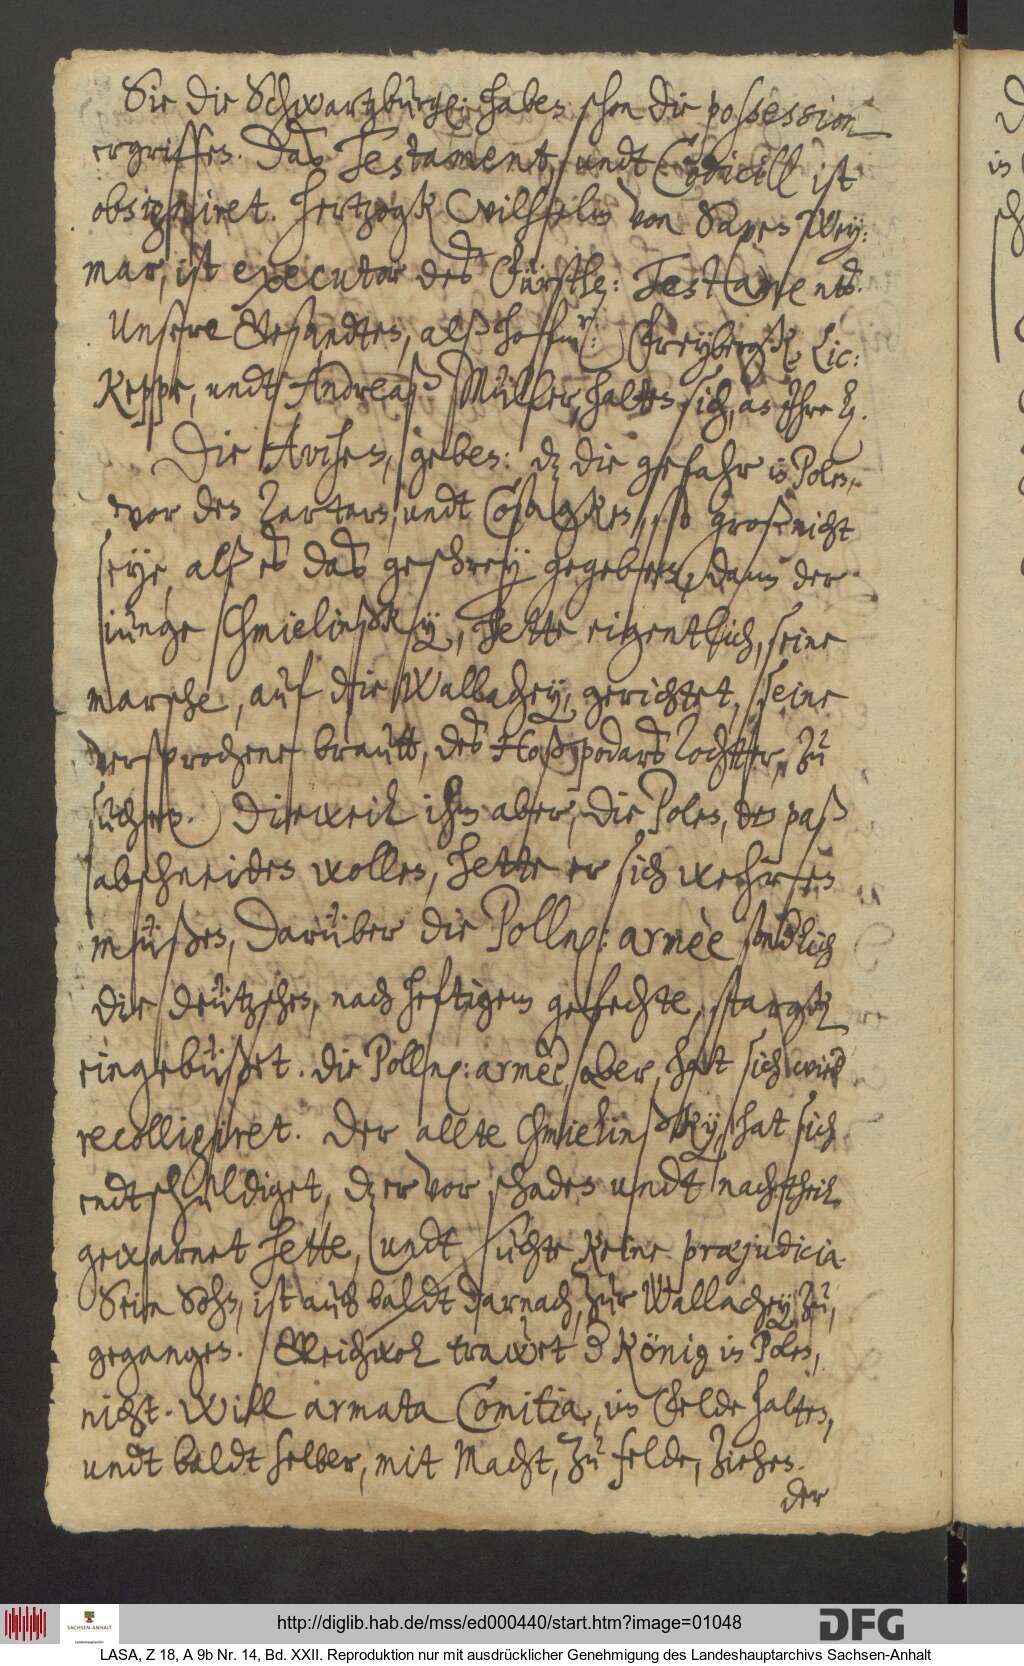 Sie die Schwartzburg: haben schon die possession
ergriffen. Das Testament, undt Codicill ist
obsigniret. Hertzogk Wilhelm von Saxen Wey:
mar, ist executor des Fürstl: Testaments.
Unsere Gesandten, alß hofm: Freybergk, Lic:
Keppe, undt Andreaß Müller, halten sich, an Ihre
Die Avisen, geben: dz die gefahr in Polen,
vor den Tartern, undt Cosagken, so groß nicht
seye, alß es das geschrey gegeben, dann der
iunge Chmielinßky, hette eigentlich, seine
marsche, auf die Wallachey, gerichtet, seine
versprochene brautt, des Hoßpodars Tochtter, zu
suchen. Dieweil ihm aber, die Polen, den paß
abschneiden wollen, hette er sich wehren
müßen, darüber die Polln: armèe sondlich
die deützschen, nach heftigem gefechte, stargk
eingebüßet. Die Polln: armèe, aber, hat sich wied
recolligiret. Der allte Chmielinßky, hat sich
endtschuldiget, dz er vor schaden undt nachtheil
gewarnet hette, undt suchte keine præjudicia.
Sein Sohn, ist auch baldt darnach, zur Wallachey, zu,
gegangen. Gleichwol trawet d König in Polen,
nicht. Will armata Comitia, im Felde halten,
undt baldt selber, mit Macht, zu felde, ziehen.
der
http://diglib.hab.de/mss/ed000440/start.htm?image=01048
DFG
SACHSEN-ANHALT
LASA, Z 18, A 9b Nr. 14, Bd. XXII. Reproduktion nur mit ausdrücklicher Genehmigung des Landeshauptarchivs Sachsen-Anhalt